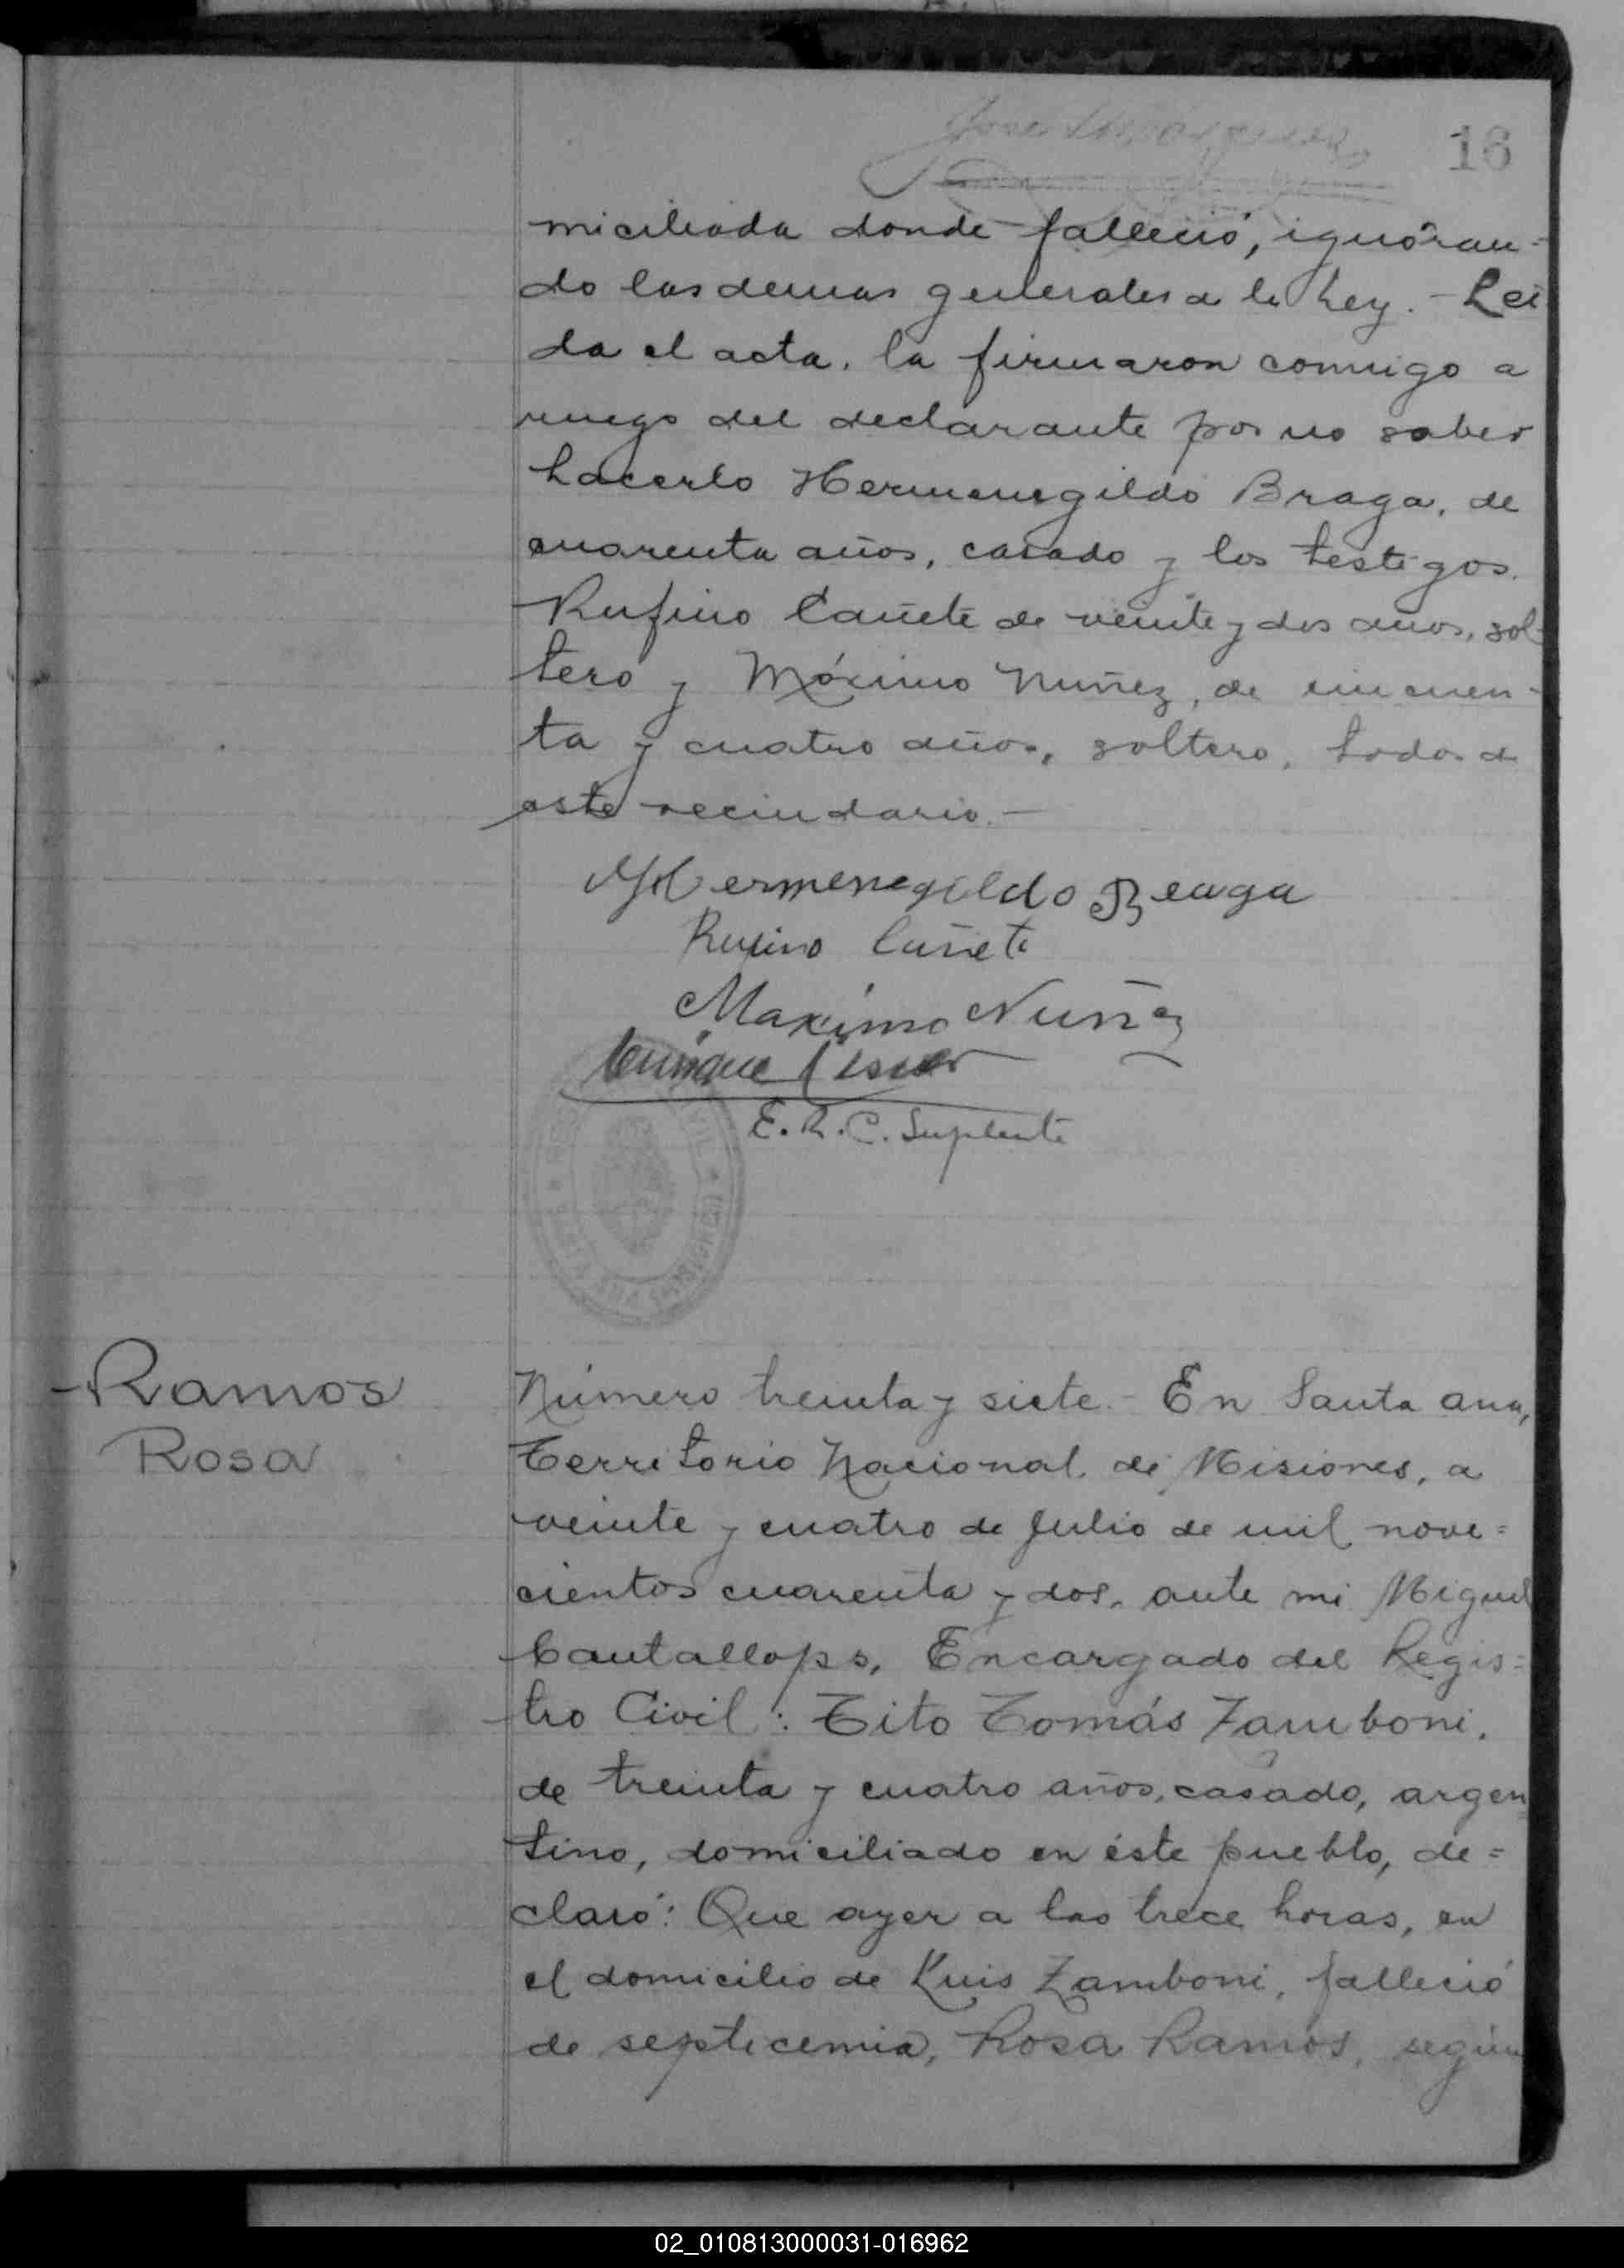 16
miciliada donde falleció, ignoran=
do las demas generales de la Ley. - Lei
da el acta, la firmaron conmigo a
ruego del declarante por no saber
hacerlo Hermenegildo Braga, de
cuarenta años, casado y los testigos
Rufino Cañete de veinte y dos años, sol=
tero y Máximo Nuñez, de cincuen-
ta y cuatro años, soltero, todos de
este vecindario.-
Hermenegildo Beaga
Rufino Cañete
Maximo Nuñez
Enrique
E. R. C. Suplente
Ramos
Rosa
Número treinta y siete.- En Santa Ana,
Territorio Nacional de Misiones, a
veinte y cuatro de Julio de mil nove=
cientos cuarenta y dos, ante mi Miguel
Cantallops, Encargado del Regis=
tro Civil: Tito Tomás Zamboni,
de treinta y cuatro años, casado, argen
tino, domiciliado en éste pueblo, de=
claró: Que ayer a las trece horas, en
el domicilio de Luis Zamboni, falleció
de septicemia, Rosa Ramos, según
02_010813000031-016962